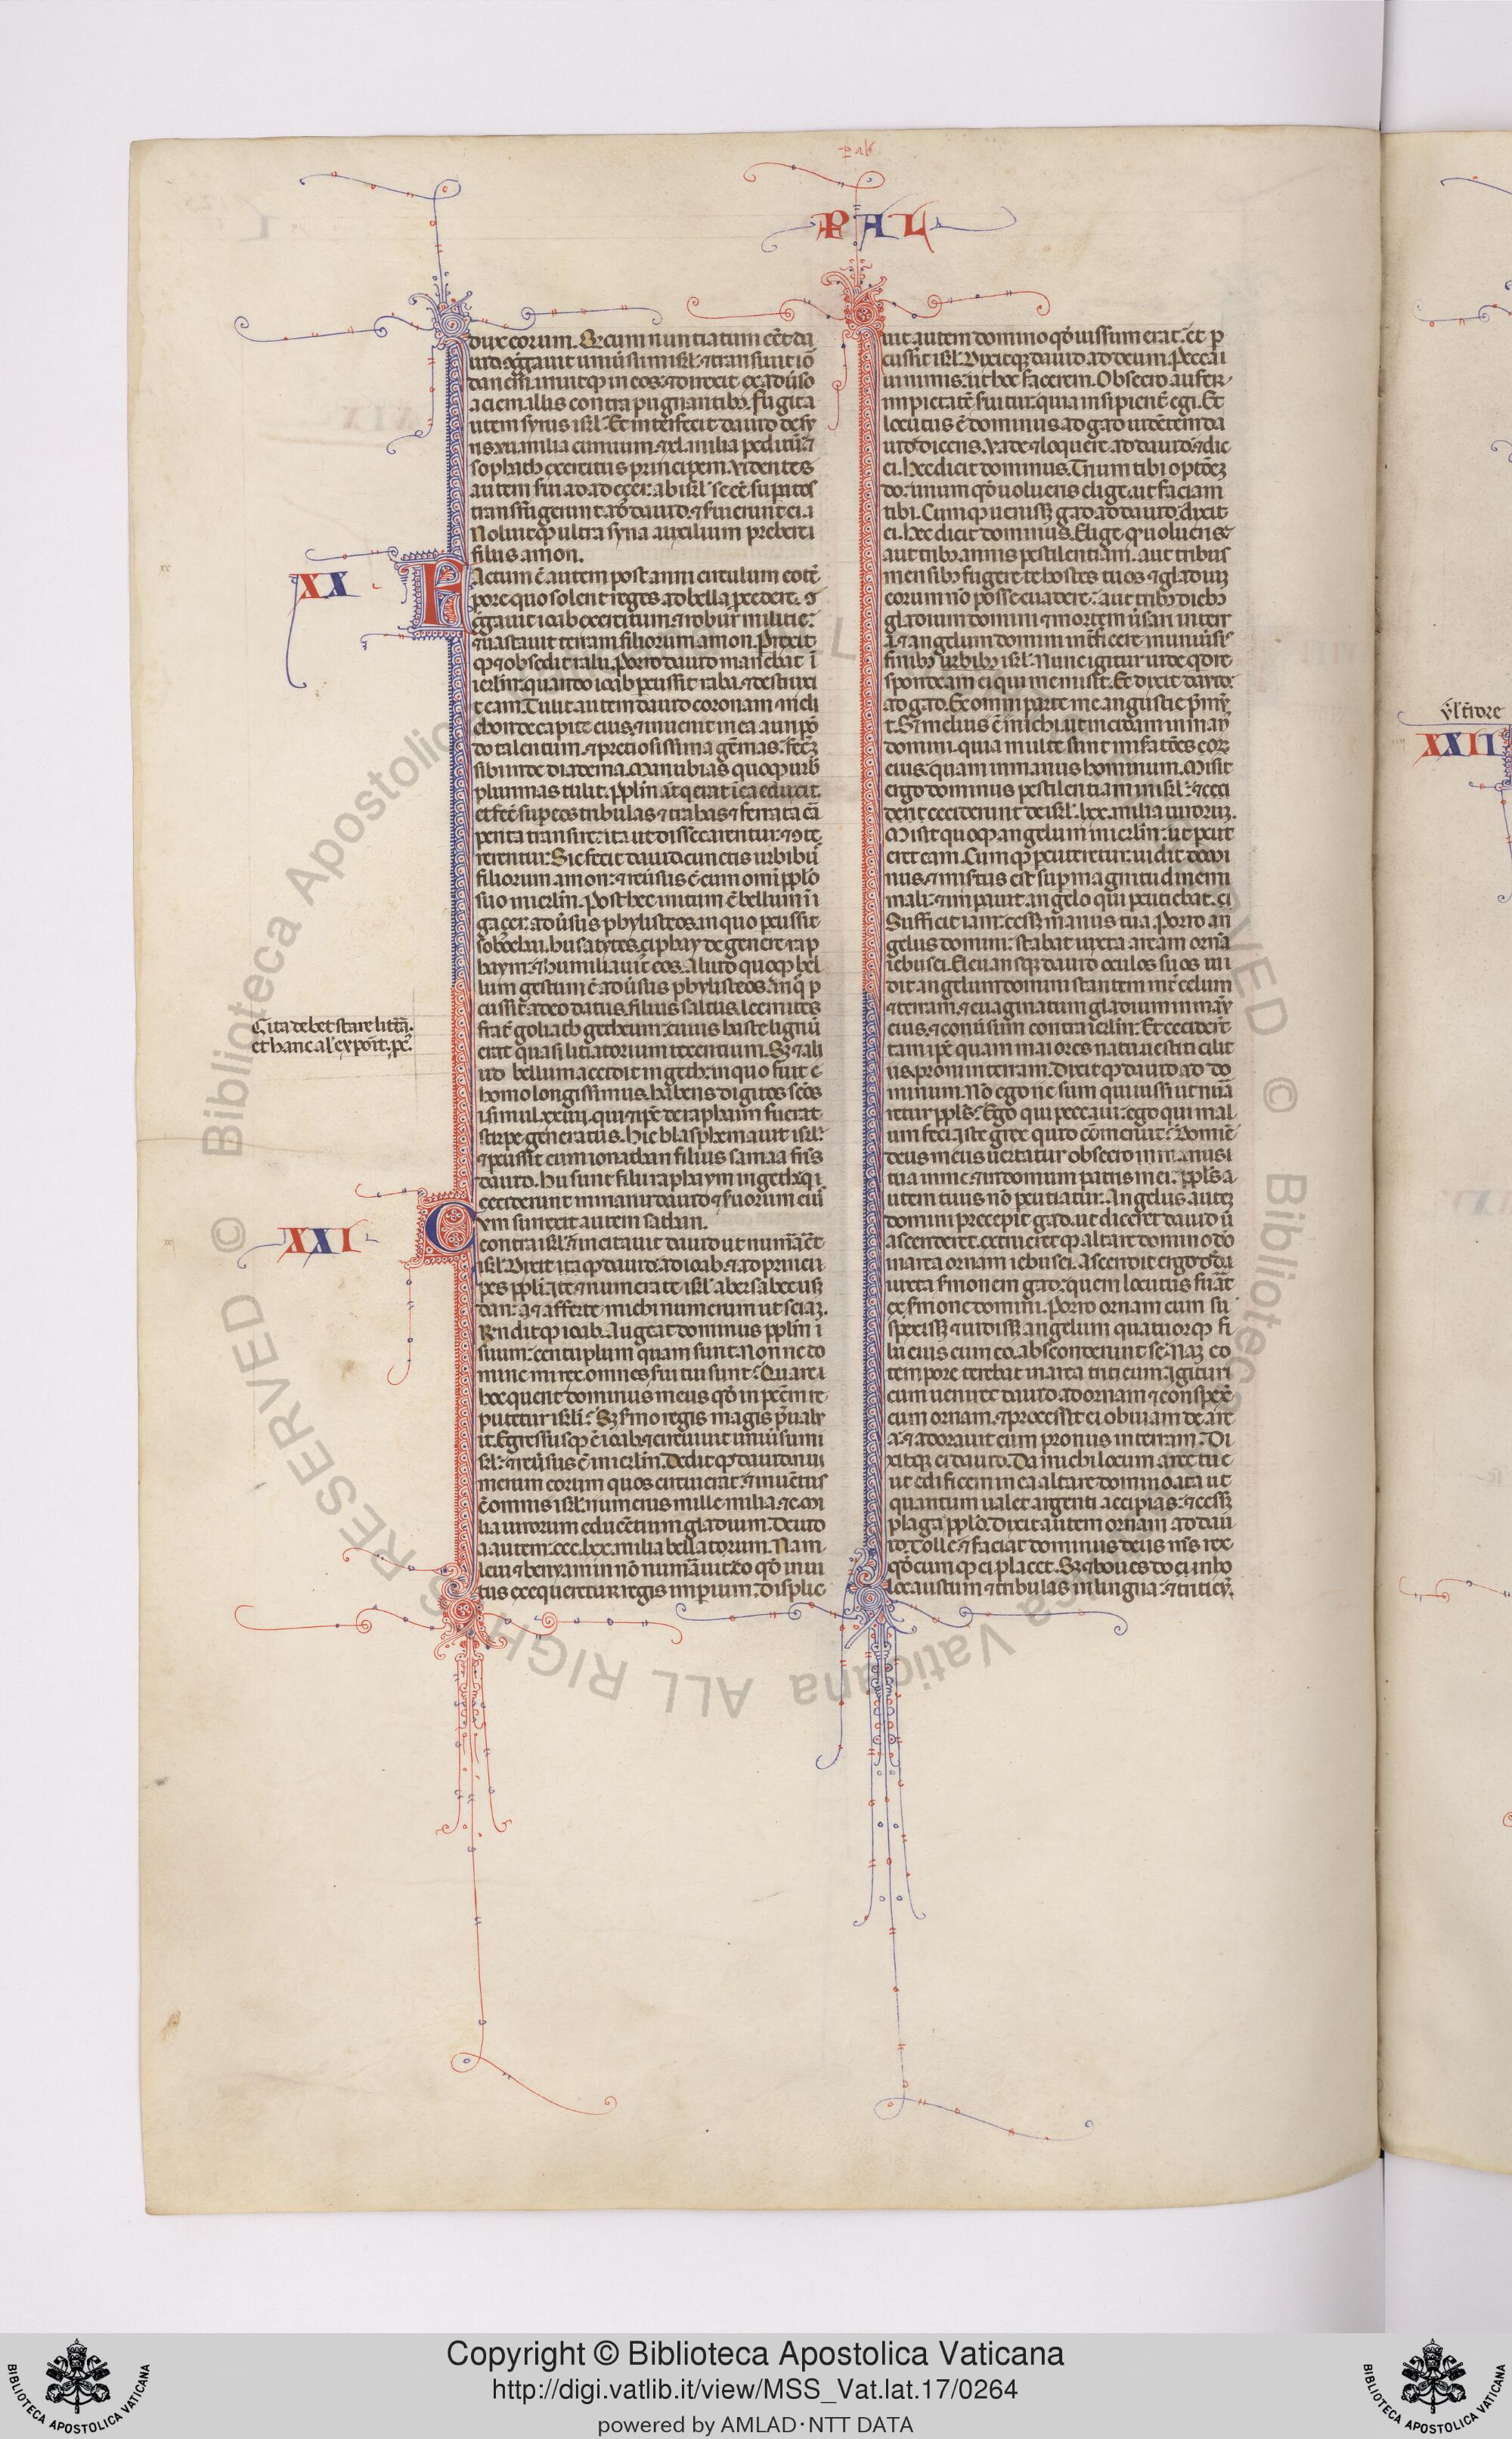 Pal'
PAL
dux eorum. Et cum nuntiatum eēt da
uid ꝯg̃gauit uniũsum isrl' ⁊ transiuit ior
danem. irruitqꝫ in eos. ⁊ direxit ex aduso
aciem illis contra pugnantibꝫ. Fugit a
utem syrus isrl'. Et interfecit dauid de sy
ris. uii. milia curruum. ⁊ xl. milia peditũ. ⁊
sophath exercitus principem. Videntes
autem serui adadezer. ab isrl' se eē supatos
transfugerunt ad dauid. ⁊ seruierunt ei.
Noluitqꝫ ultra syria auxilium prebere
filiis amon.
XX
Factum ē autem post anni circulum eo tē
pore quo solent reges ad bella p̃cedere. ꝯ
g̃gauit ioab exercitum ⁊ robur militie.
⁊ uastauit terram filiorum amon. Prexit
qꝫ ⁊ obsedit raba. Porro dauid manebat ī
ierl'm. quando ioab p̃cussit raba. ⁊ destruxi
t eam. Tulit autem dauid coronam melch
chon de capite eius. ⁊ inuenit in ea auri pō
do talentum. ⁊ preciosissimas gēmas. fecitqꝫ
sibi inde diadema. Manubias quoqꝫ urbis
plurimas tulit. pp̃lm aūt q̃ erat ī ea eduxit.
et fecit sup eos tribulas ⁊ trahas ⁊ ferrata car
penta transire. ita ut dissecarentur. ⁊ ꝯte
rerentur. Sic fecit dauid cunctis urbibus
filiorum amon. ⁊ reũsus ē cum omi pp̃lo
suo in ierl'm. Post hec initum ē bellum in
gacer. aduersus phylisteos. in quo percussit
sobochai. husatytes. ciphay de genere rap
haym. ⁊ humiliauit eos. Aliud quoqꝫ bel
lum gestum ē aduersus phylisteos. in q̃ p
cussit adeodatus filius saltus. leemites
fratrem goliath getheum. cuius haste lignũ
erat quasi litiatorium texentium. Sꝫ ⁊ ali
ud bellum accidit in geth. in quo fuit
homo longissimus. habens digitos senos
i. simul. xxiiii. qui ⁊ ipse de raphaim fuerat
stirpe generatus. Hic blasphemauit isrl'.
⁊ percussit eum ionathan filius samaa fr̃is
dauid. Hii sunt filii raphaym in geth. qui
ceciderunt in manu dauid ⁊ seruorum eius
⁋ Ita debet stare littera.
et hanc al' exponit. pet.
XXI
Consurrexit autem sathan.
contra isrl'. ⁊ incitauit dauid ut numeraret
isrl'. Dixit itaqꝫ dauid. ad ioab. ⁊ ad princi
pes pp̃li. Ite ⁊ numerate isrl' a bersabee usqꝫ
dan. ⁊ afferte michi numerum ut sciam.
Rn̄ditqꝫ ioab. Augeat dominus pp̃lm
suum. centuplum quam sunt. Nonne do
mine mi rex. omnes serui tui sunt? Quare
hec querit dominus meus qd̄ in pecc̄m re
putetur isrli? Sꝫ sermo regis magis p̃ualu
it. Egressusqꝫ ē ioab ⁊ circuiuit uniũsum i
srl'. ⁊ reũsus ē in ierl'm. Deditqꝫ dauid nu
merum eorum quos circuierat. ⁊ inuentus
ē omnis isrl' numerus mille milia. ⁊ c. mi
lia uirorum educentium gladium. De iud
a autem. ccc. lxx. milia bellatorum. Nam
leui ⁊ benyamin nō numerauit. eo qd̄ inui
tus exequeretur regis imperium. Displic
uit autem domino qd̄ iussum erat. et p
cussit isrl'. Dixitqꝫ dauid ad deum. Peccaui
nimis. ut hec facerem. Obsecro aufer
impietatē serui tui. quia insipienē egi. Et
locutus ē dominus ad gad uidentem da
uid dicens. Vade ⁊ loquere ad dauid. ⁊ dic
ei. Hec dicit dominus. Trium tibi optionem
do. unum qd̄ uolueris elige. ut faciam
tibi. Cumqꝫ uenissꝫ gad ad dauid. dixit
ei. Hec dicit dominus. Elige q̃ uolueris.
aut tribꝫ annis pestilentiam. aut tribus
mensibꝫ fugere te hostes tuos. ⁊ gladium
eorum nō posse euadere. aut tribꝫ diebꝫ
gladium domini ⁊ mortem uersari in terr
a. ⁊ angelum domini interficere in uniuersis
finibꝫ urbibꝫ isrl'. Nunc igitur uide q̃d re
spondeam ei qui me misit. Et dixit dauid.
ad gad. Ex omni parte me angustie p̃mũ
t. Sꝫ melius ē michi. ut incidam in manꝫ
domini. quia multe sunt miserationes
eius. quam in manus hominum. Misit
ergo dominus pestilentiam in isrl'. ⁊ ceci
derunt ceciderunt de isrl'. lxx. milia uirorum.
Misit quoqꝫ angelum in ierl'm. ut percut
eret eam. Cumqꝫ percuteretur. uidit domi
nus. ⁊ misertus est sup magnitudinem
mali. ⁊ imperauit angelo qui percutiebat. ei
Sufficit iam. cesset manus tua. Porro an
gelus domini. stabat iuxta aream ornā
iebusei. Eleuansqꝫ dauid oculos suos ui
dit angelum domini stantem int̃ celum
⁊ terram. ⁊ euaginatum gladium in manu
eius. ⁊ conuersum contra ierl'm. Et ceciderũt
tam ip̃e quam maiores natu uestiti cilic
iis. proni in terram. Dixitqꝫ dauid ad do
minum. Nō ego ne sum qui iussi ut numē
retur pp̃ls? Ego qui peccaui. ego qui mal
um feci. iste grex quid cōmeruit? Domine
deus meus uertatur obsecro manus
tua in me. ⁊ in domum patris mei. pp̃ls a
utem tuus nō percutiatur. Angelus autem
domini precepit gad. ut diceret dauid. ut
ascenderet. extrueretqꝫ altare domino deo
in area ornam iebusei. Ascendit ergo dauid
iuxta sermonem gad. quem locutus fuerat
ex sermone domini. Porro ornam cum su
spexissꝫ ⁊ uidissꝫ angelum. quatuorqꝫ fi
lii eius cum eo. absconderunt se. Nam eo
tempore terebat in area triticum. Igitur
cum ueniret dauid ad ornam. ⁊ conspexit
eum ornam. ⁊ processit ei obuiam de are
a. ⁊ adorauit eum pronus in terram. Di
xitqꝫ ei dauid. Da michi locum aree tue
ut edificem in ea altare domino. ita ut
quantum ualet argenti accipias. ⁊ cesset
plaga pp̃lo. Dixit autem ornam ad dau
id. Tolle. ⁊ faciat dominus deus m̃s rex
qd̄cumqꝫ ei placet. Sꝫ ⁊ boues do ei in ho
locaustum ⁊ tribulas in ligna. ⁊ triticum
XXII
Copyright © Biblioteca Apostolica Vaticana
http://digi.vatlib.it/view/MSS_Vat.lat.17/0264
powered by AMLAD·NTT DATA
BIBLIOTECA APOSTOLICA VATICANA
BIBLIOTECA APOSTOLICA VATICANA
© Biblioteca Apostolica Vaticana ALL RIGHTS RESERVED